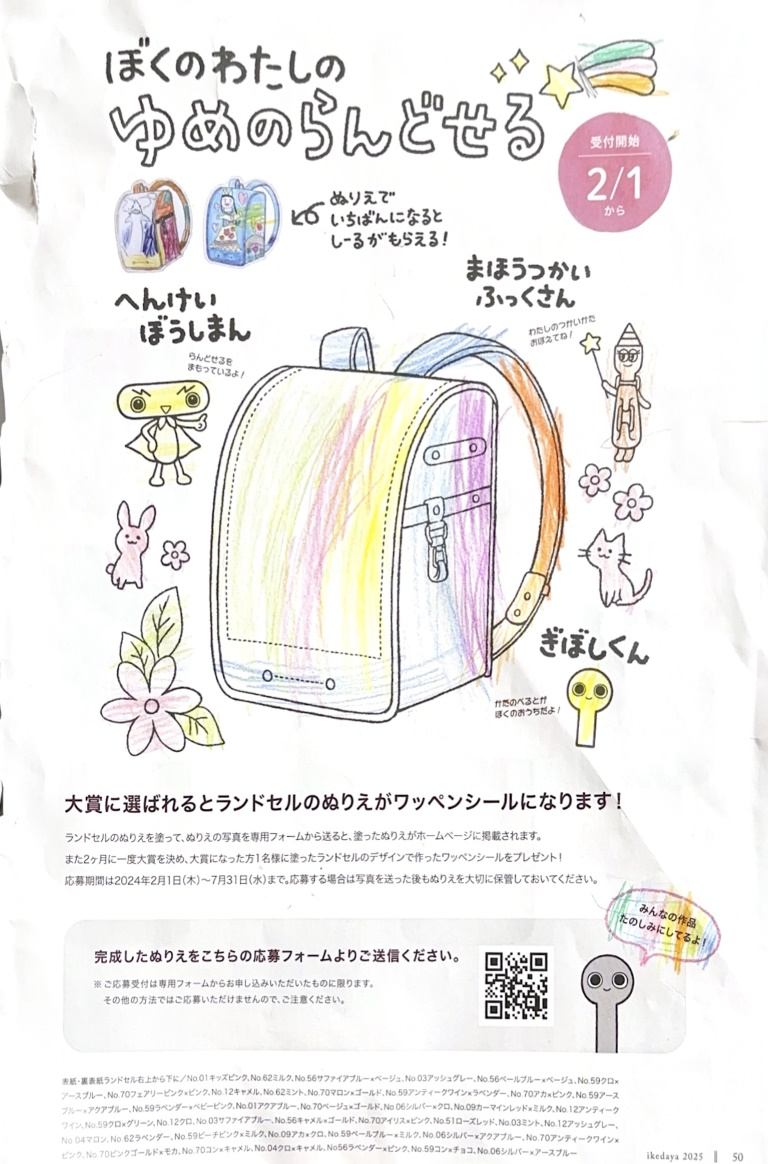 ぼくのわたしの
ゆめのらんどせる
受付開始
2/1
から
ぬりえで
いちばんになると
しーるがもらえる!
まほうつかい
ふっくさん
わたしのつかいかた
おぼえてね!
へんけい
ぼうしまん
らんどせるを
まもっているよ!
ぎぼしくん
かたのべるとが
ぼくのおうちだよ!
大賞に選ばれるとランドセルのぬりえがワッペンシールになります!
ランドセルのぬりえを塗って、ぬりえの写真を専用フォームから送ると、塗ったぬりえがホームページに掲載されます。
また2ヶ月に一度大賞を決め、大賞になった方1名様に塗ったランドセルのデザインで作ったワッペンシールをプレゼント!
応募期間は2024年2月1日(木)〜7月31日(水)まで。応募する場合は写真を送った後もぬりえを大切に保管しておいてください。
みんなの作品
たのしみにしてるよ!
完成したぬりえをこちらの応募フォームよりご送信ください。
※ご応募受付は専用フォームからお申し込みいただいたものに限ります。
その他の方法ではご応募いただけませんので、ご注意ください。
表紙・裏表紙ランドセル右上から下に/No.01キッズピンク、No.62ミルク、No.56サファイアブルー×ベージュ、No.03アッシュグレー、No.56ペールブルー×ベージュ、No.59クロ×
アースブルー、No.70フェアリーピンク×ピンク、No.12キャメル、No.62ミント、No.70マロン×ゴールド、No.59アンティークワイン×ラベンダー、No.70アカ×ピンク、No.59アース
ブルー×アクアブルー、No.59ラベンダー×ベビーピンク、No.01アクアブルー、No.70ベージュ×ゴールド、No.06シルバー×クロ、No.09カーマインレッド×ミルク、No.12アンティーク
ワイン、No.59クロ×グリーン、No.12クロ、No.03サファイアブルー、No.56キャメル×ゴールド、No.70アイリス×ピンク、No.51ローズレッド、No.03ミント、No.12アッシュグレー、
No.04マロン、No.62ラベンダー、No.59ピーチピンク×ミルク、No.09アカ×クロ、No.59ペールブルー×ミルク、No.06シルバー×アクアブルー、No.70アンティークワイン×
ピンク、No.70ピンクゴールド×モカ、No.70コン×キャメル、No.04クロ×キャメル、No.56ラベンダー×ピンク、No.59コン×チョコ、No.06シルバー×アースブルー
ikedaya 2025 50